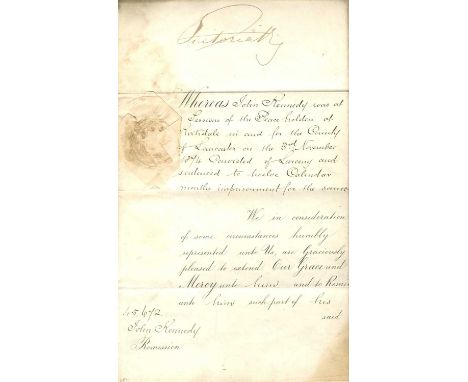 Victoria R
Whereas John Kennedy was at
Session of the Peace holden at
Rochdale in and for the County
of Lancaster on the 3rd November
1874 Convicted of Larceny and
sentenced to twelve Calendar
months imprisonment for the same
We in consideration
of some circumstances humbly
represented unto Us, are Graciously
pleased to extend Our Grace and
Mercy unto him and to Remit
unto him such part of his
said
5,672
John Kennedy
Remission